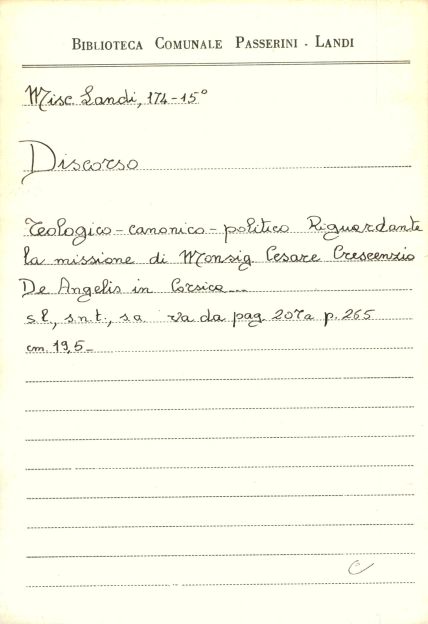 BIBLIOTECA COMUNALE PASSERINI - LANDI
Misc. Landi, 174-15°
Discorso
Teologico-canonico-politico Riguardante
la missione di Monsig. Cesare Crescenzio
De Angelis in Corsica...
s.l, s.n.t., s.a va da pag. 207 a p. 265
cm. 19,5-
C